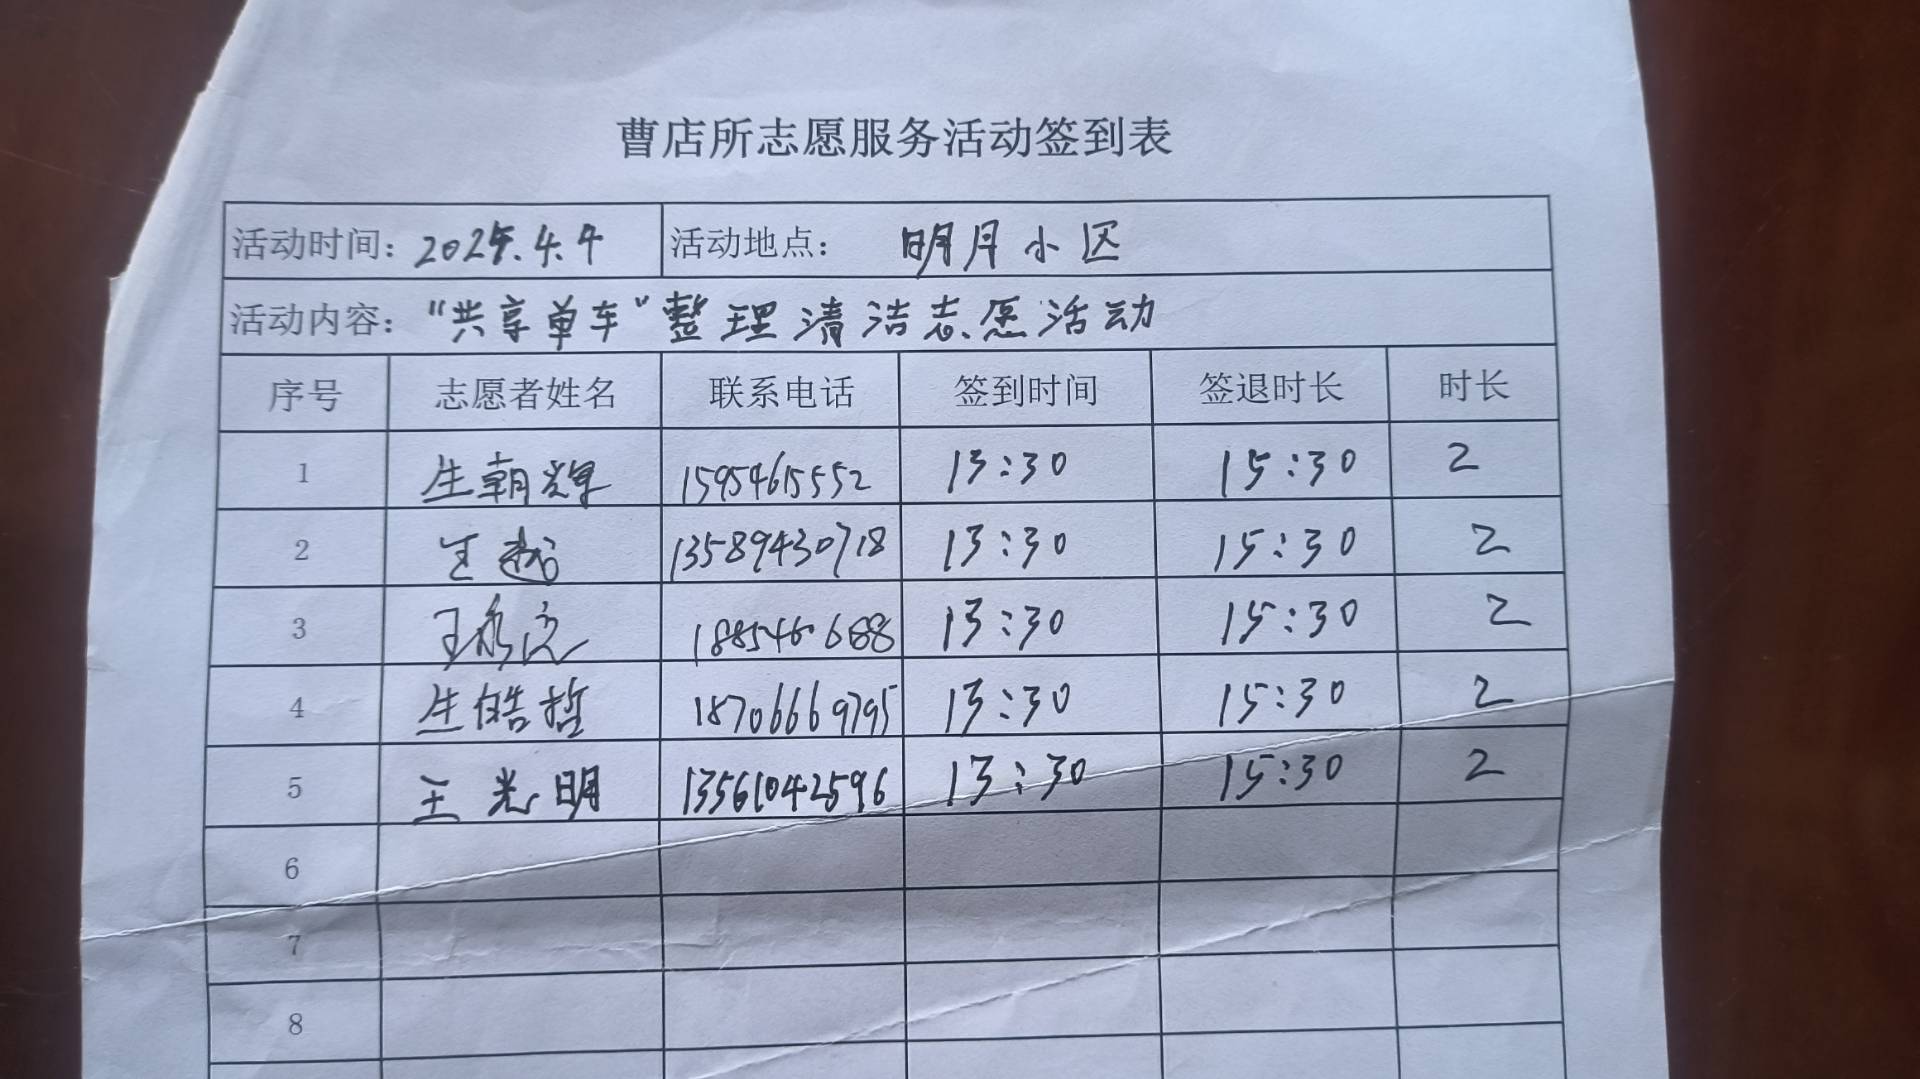 曹店所志愿服务活动签到表
活动时间：2025.4.4 活动地点： 明月小区
活动内容：“共享单车”整理清洁志愿活动
序号 志愿者姓名 联系电话 签到时间 签退时长 时长
1 生朝辉 15954615552 13:30 15:30 2
2 王越 13589430718 13:30 15:30 2
3 王 13:30 15:30 2
4 生皓哲 18706669795 13:30 15:30 2
5 王光明 13561042596 13:30 15:30 2
6
7
8